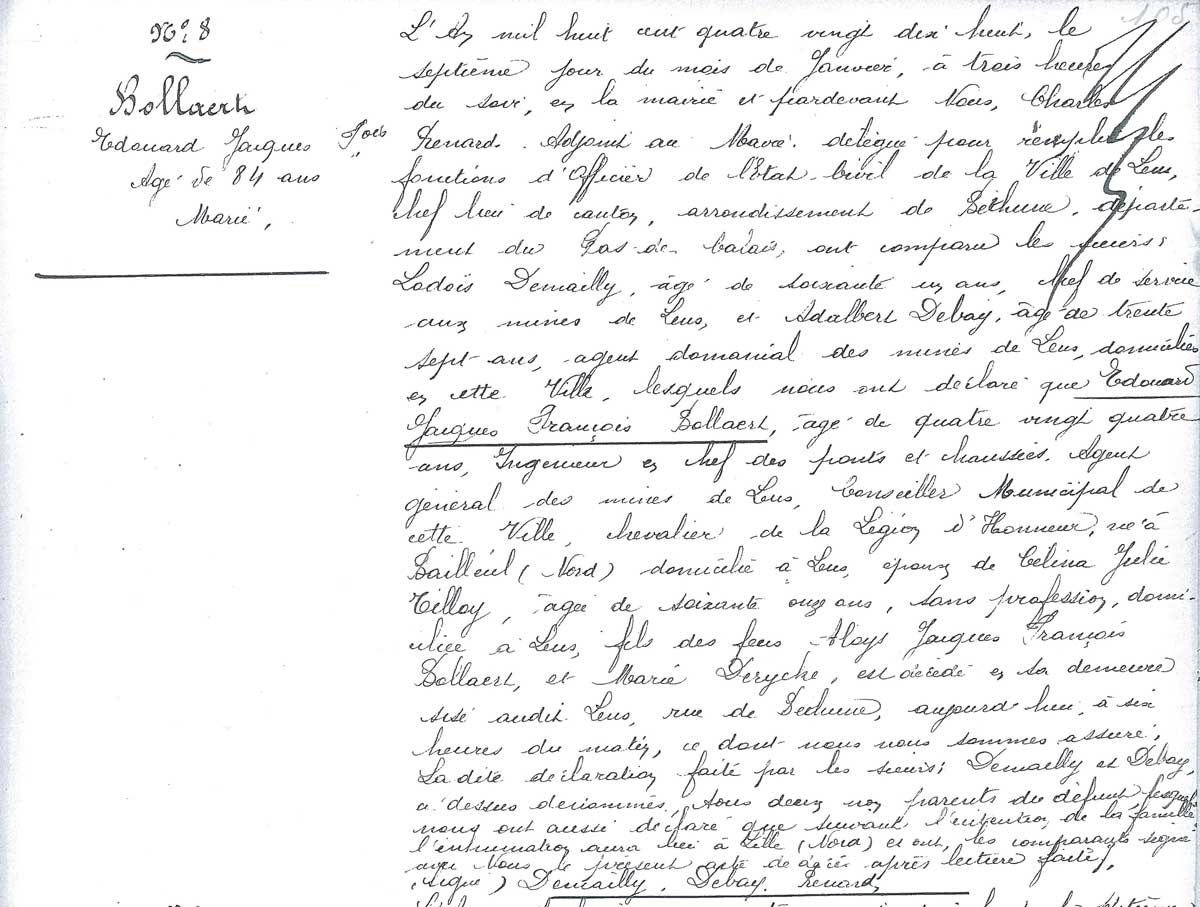 108
N° 8
Bollaert
Edouard Jacques Fcois
Agé de 84 ans
Marié,
L'An mil huit cent quatre vingt dix huit, le
septième jour du mois de Janvier, à trois heures
du soir, en la mairie et pardevant Nous, Charles
Renard. Adjoint au Maire. délégué pour remplir les
fonctions d'Officier de l'Etat-Civil de la Ville de Lens,
chef lieu de canton, arrondissement de Béthune, départe-
ment du Pas-de-Calais, ont comparu les sieurs:
Lodoïs Demailly, âgé de soixante un ans, chef de service
aux mines de Lens, et Adalbert Debay, âgé de trente
sept ans, agent domanial des mines de Lens, domiciliés
en cette Ville, lesquels nous ont déclaré que Edouard
Jacques François Bollaert, âgé de quatre vingt quatre
ans, Ingénieur en chef des ponts et chaussées. Agent
général des mines de Lens, Conseiller Municipal de
cette Ville, chevalier de la Légion d'Honneur, né à
Bailleul (Nord) domicilié à Lens, époux de Célina Julie
Tilloy, âgée de soixante onze ans, sans profession, domi-
ciliée à Lens, fils des feus Aloys Jacques François
Bollaert, et Marie Derycke, est décédé en sa demeure
sise audit Lens, rue de Béthune, aujourd'hui, à six
heures du matin, ce dont nous nous sommes assuré,
La dite déclaration faite par les sieurs: Demailly et Debay,
ci-dessus dénommés, tous deux non parents du défunt lesquels
nous ont aussi déclaré que suivant l'intention de la famille
l'inhumation aura lieu à Lille (Nord) et ont, les comparants signé
avec Nous le présent acte de décès après lecture faite,
(Signé) Demailly, Debay, Renard,